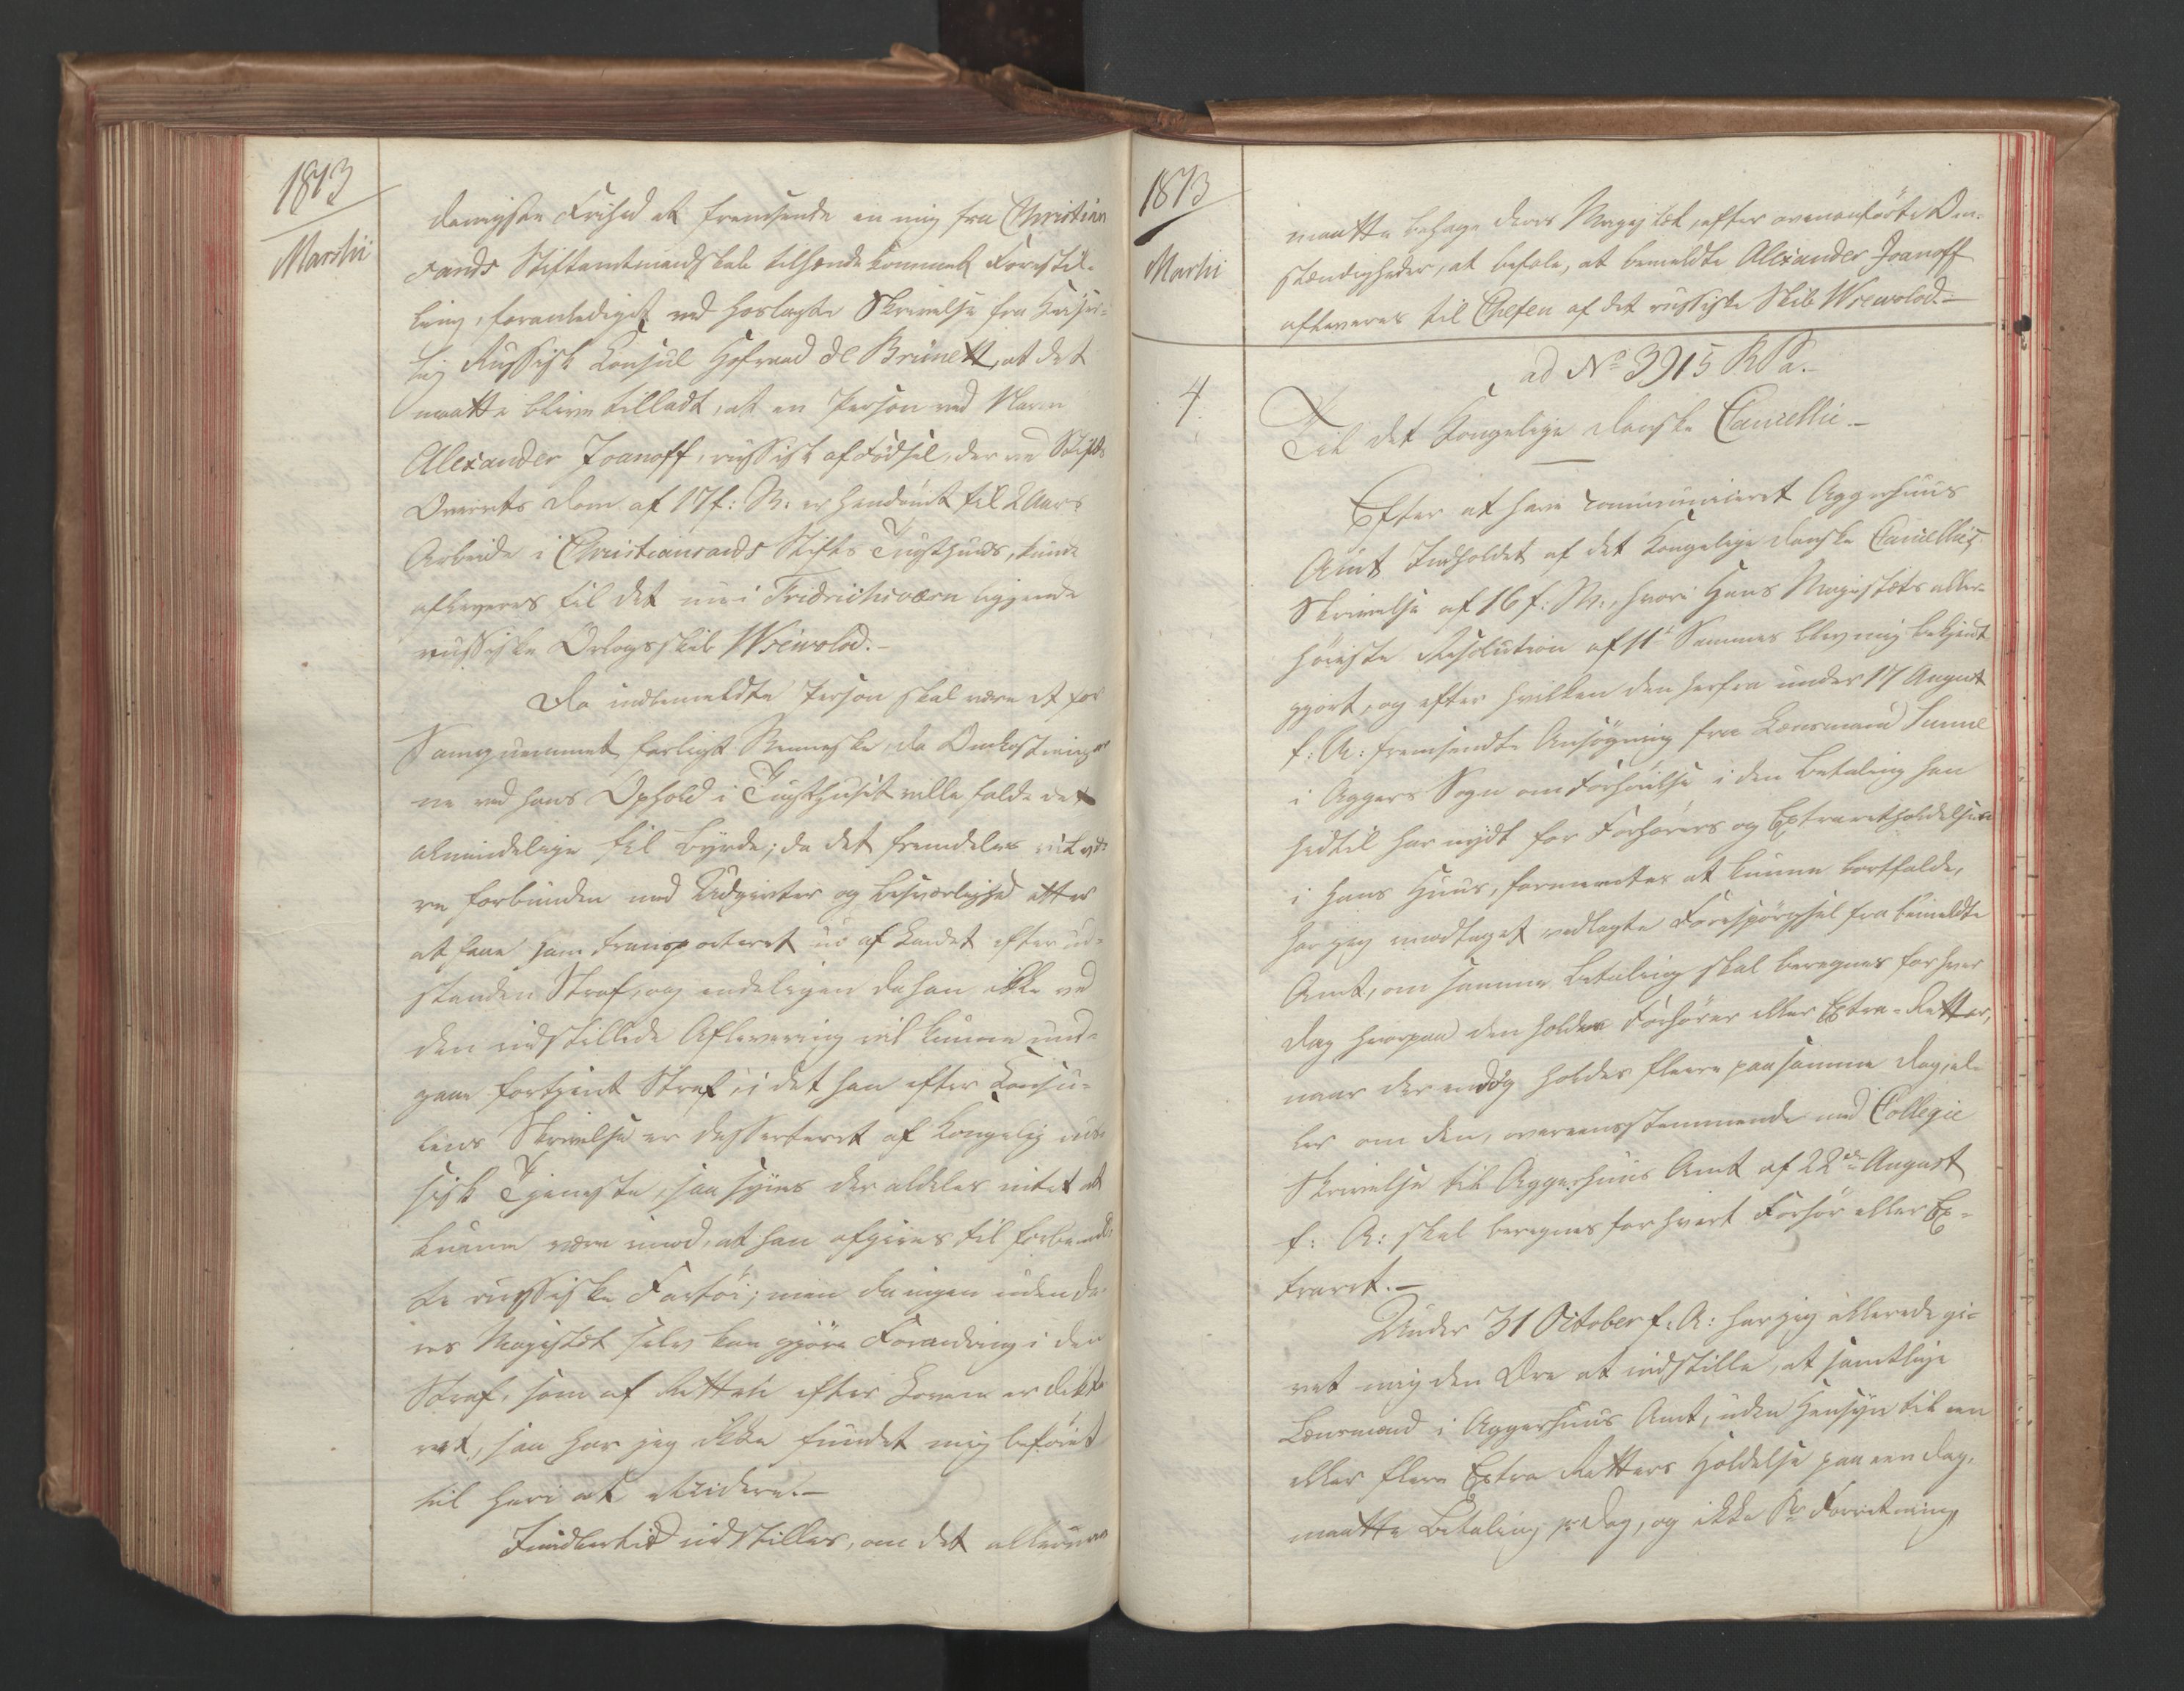 1813
Martii
damigste Frihed at fremsende en mig fra Christian
sands Stiftamtmandskab tilhændekommet Forestil-
ling, foranlediget ved hoslagte Skrivelse fra Keiser-
lig Russisk Consul Hofraad de Brunett, at det
maatte blive tilladt, at en Person ved Navn
Alexander Joanoff, russisk af Fødsel, der ved Stifts
Overrets Dom af 17 f: M: er hendømt til 2 Aars
Arbeide i Christiansands Stifts Tugthuus, kunde
afleveres til det nu i Fridrichsværn liggende
russiske Orlogsskib Wsewolod.-
Da indbemeldte Person skal være et for
Samqvemmet farligt Menneske, da Omkostninger
ne ved hans Ophold i Tugthuset ville falde det
almindelige til Byrde; da det fremdeles vil væ-
re forbunden med Udgivter og Besværlighed atter
at faae ham transporteret ud af Landet efter ud-
standen Straf, og endeligen da han ikke ved
den indstillede Aflevering vil kunne und-
gaae fortient Straf, i det han efter Consu-
lens Skrivelse er desserteret af Kongelig rus-
sisk Tjeneste, saa synes der aldeles intet at
kunne være imod, at han afgives til forbemeld-
te russiske Fartøi; men da ingen uden De-
res Majestæt selv kan gjøre Forandring i den
Straf, som af Retten efter Loven er dikte-
ret, saa har jeg ikke fundet mig beføiet
til heri at decidere.-
Imidlertid indstilles, om det allerun
1813
Martii
maatte behage Deres Majestæt, efter ovenanførte Om-
stændigheder, at befale, at bemeldte Alexander Joanoff
afleveres til Chefen af det russiske Skib Wsewolod.-
ad No 3915 RPa.-
4.
Til det Kongelige danske Cancellie.-
Efter at have communiceret Aggershuus
Amt Indholdet af det Kongelige danske Cancellies
Skrivelse af 16 f: M:, hvori Hans Majestæts aller-
høieste Resolution af 11te Sammes blev mig bekjendt
gjort, og efter hvilken den herfra under 17 August
f: A: fremsendte Ansøgning fra Lensmand Sunne
i Aggers Sogn om Forhøielse i den Betaling han
hidtil har nydt for Forhørers og Extraretholdelser
i hans Huus, formeentes at kunne bortfalde,
har jeg modtaget vedlagte Forespørgsel fra bemeldte
Amt, om samme Betaling skal beregnes for hver
Dag hvorpaa den holdes Forhører eller Extra-Retter,
naar der endog holdes fleere paa samme Dag, el-
ler om den, overeensstemmende med Collegie
Skrivelse til Aggershuus Amt af 22de August
f: A: skal beregnes for hvert Forhør eller Ex-
traret.-
Under 31 October f: A: har jeg allerede gi-
vet mig den Ære at indstille, at samtlige
Lensmænd i Aggershuus Amt, uden Hensyn til een
eller flere Extra Retters Holdelse paa een Dag,
maatte Betaling pr Dag, og ikke pr Forretning